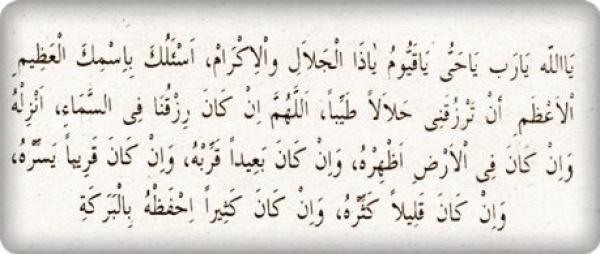 يَااَللّٰه يَارَب يَاحَىُّ يَاقَيُّومُ يٰاذَا الْجَلاَلِ واْلاِكْرَامْ، اَسْئَلُكَ بِاِسْمِكَ الْعَظِيمِ
اْلاَعْظَمِ أنْ تَرْزُقَنِى حَلاَلاً طَيِّباً، اَللَّهُمَّ اِنْ كَانَ رِزْقُنَا فِى السَّمَاءِ، اَنْزِلْهُ
وَاِنْ كَانَ فِى اْلاَرْضِ اَظْهِرْهُ، وَاِنْ كَانَ بَعِيداً قَرِّبْهُ، وَاِنْ كَانَ قَرِيباً يَسِّرْهُ،
وَاِنْ كَانَ قَلِيلاً كَثِّرْهُ، وَاِنْ كَانَ كَثِيراً اِحْفَظْهُ بِالْبَرَكَةِ